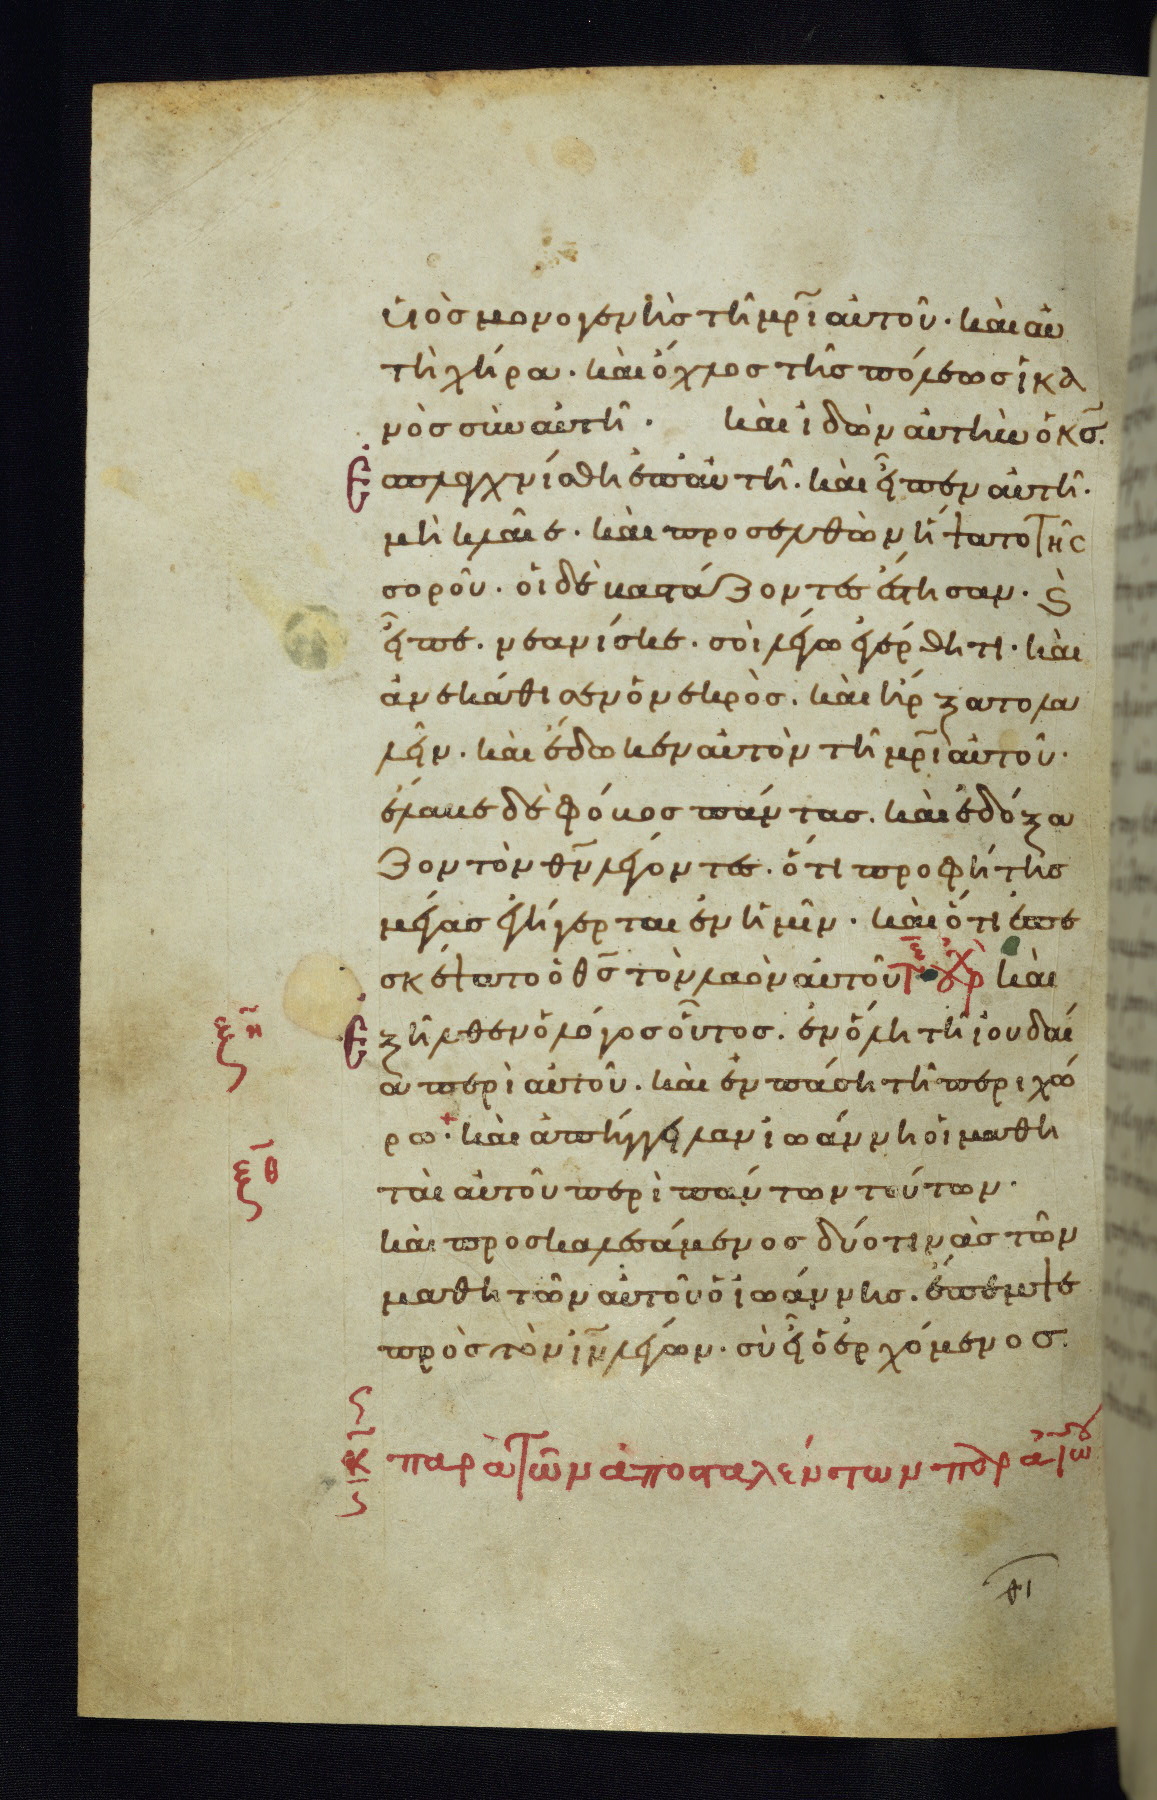 υἱὸσ μονογενὴσ τῆ μρ̅ι αὐτοῦ· καὶ αὐ
τὴ χήρα· καὶ ὄχλοσ τῆσ πόλεωσ ἱκα
νὸσ σὺν αὐτῆ· καὶ ἰδὼν αὐτὴν ὁ κ̅σ̅.
Ἐσπλαγχνίσθη ἐπ' αὐτῆ· καὶ εἶπεν αὐτῆ·
μὴ κλαῖε· καὶ προσελθὼν ἥψατο τῆσ
σοροῦ· οἱ δὲ βαστάζοντεσ ἔστησαν· ϗ
εἶπε· νεανίσκε· σοὶ λέγω ἐγέρθητι· καὶ
ἀνεκάθισεν ὁ νεκρὸσ· καὶ ἤρξατο λα
λεῖν· καὶ ἔδωκεν αὐτὸν τῆ μρ̅ι αὐτοῦ·
ἔλαβε δὲ φόβοσ πάντασ· καὶ ἐδόξα
ζον τὸν θ̅ν̅ λέγοντεσ· ὅτι προφήτησ
μέγασ ἐγήγερται ἐν ἡμῖν· καὶ ὅτι ἐπε
σκέψατο ὁ θ̅σ̅ τὸν λαὸν αὐτοῦ καὶ
Ἐξῆλθεν ὁ λόγοσ οὗτοσ· ἐν ὅλη τῆ ἰουδαί
α περὶ αὐτοῦ· καὶ ἐν πάση τῆ περιχώ
ρω· καὶ ἀπήγγειλαν ἰωάννη οἱ μαθη
ταὶ αὐτοῦ περὶ πάντων τούτων·
καὶ προσκαλεσάμενοσ δύο τινὰσ τῶν
μαθητῶν αὐτοῦ ὁ ἰωάννησ· ἔπεμψε
πρὸσ τὸν ι̅ν̅ λέγων· σὺ εἶ ὁ ἐρχόμενοσ·
ξ̅η̅
ξ̅θ̅
κ̅ παρὰ τῶν ἀποσταλέντων παρὰ ἰω